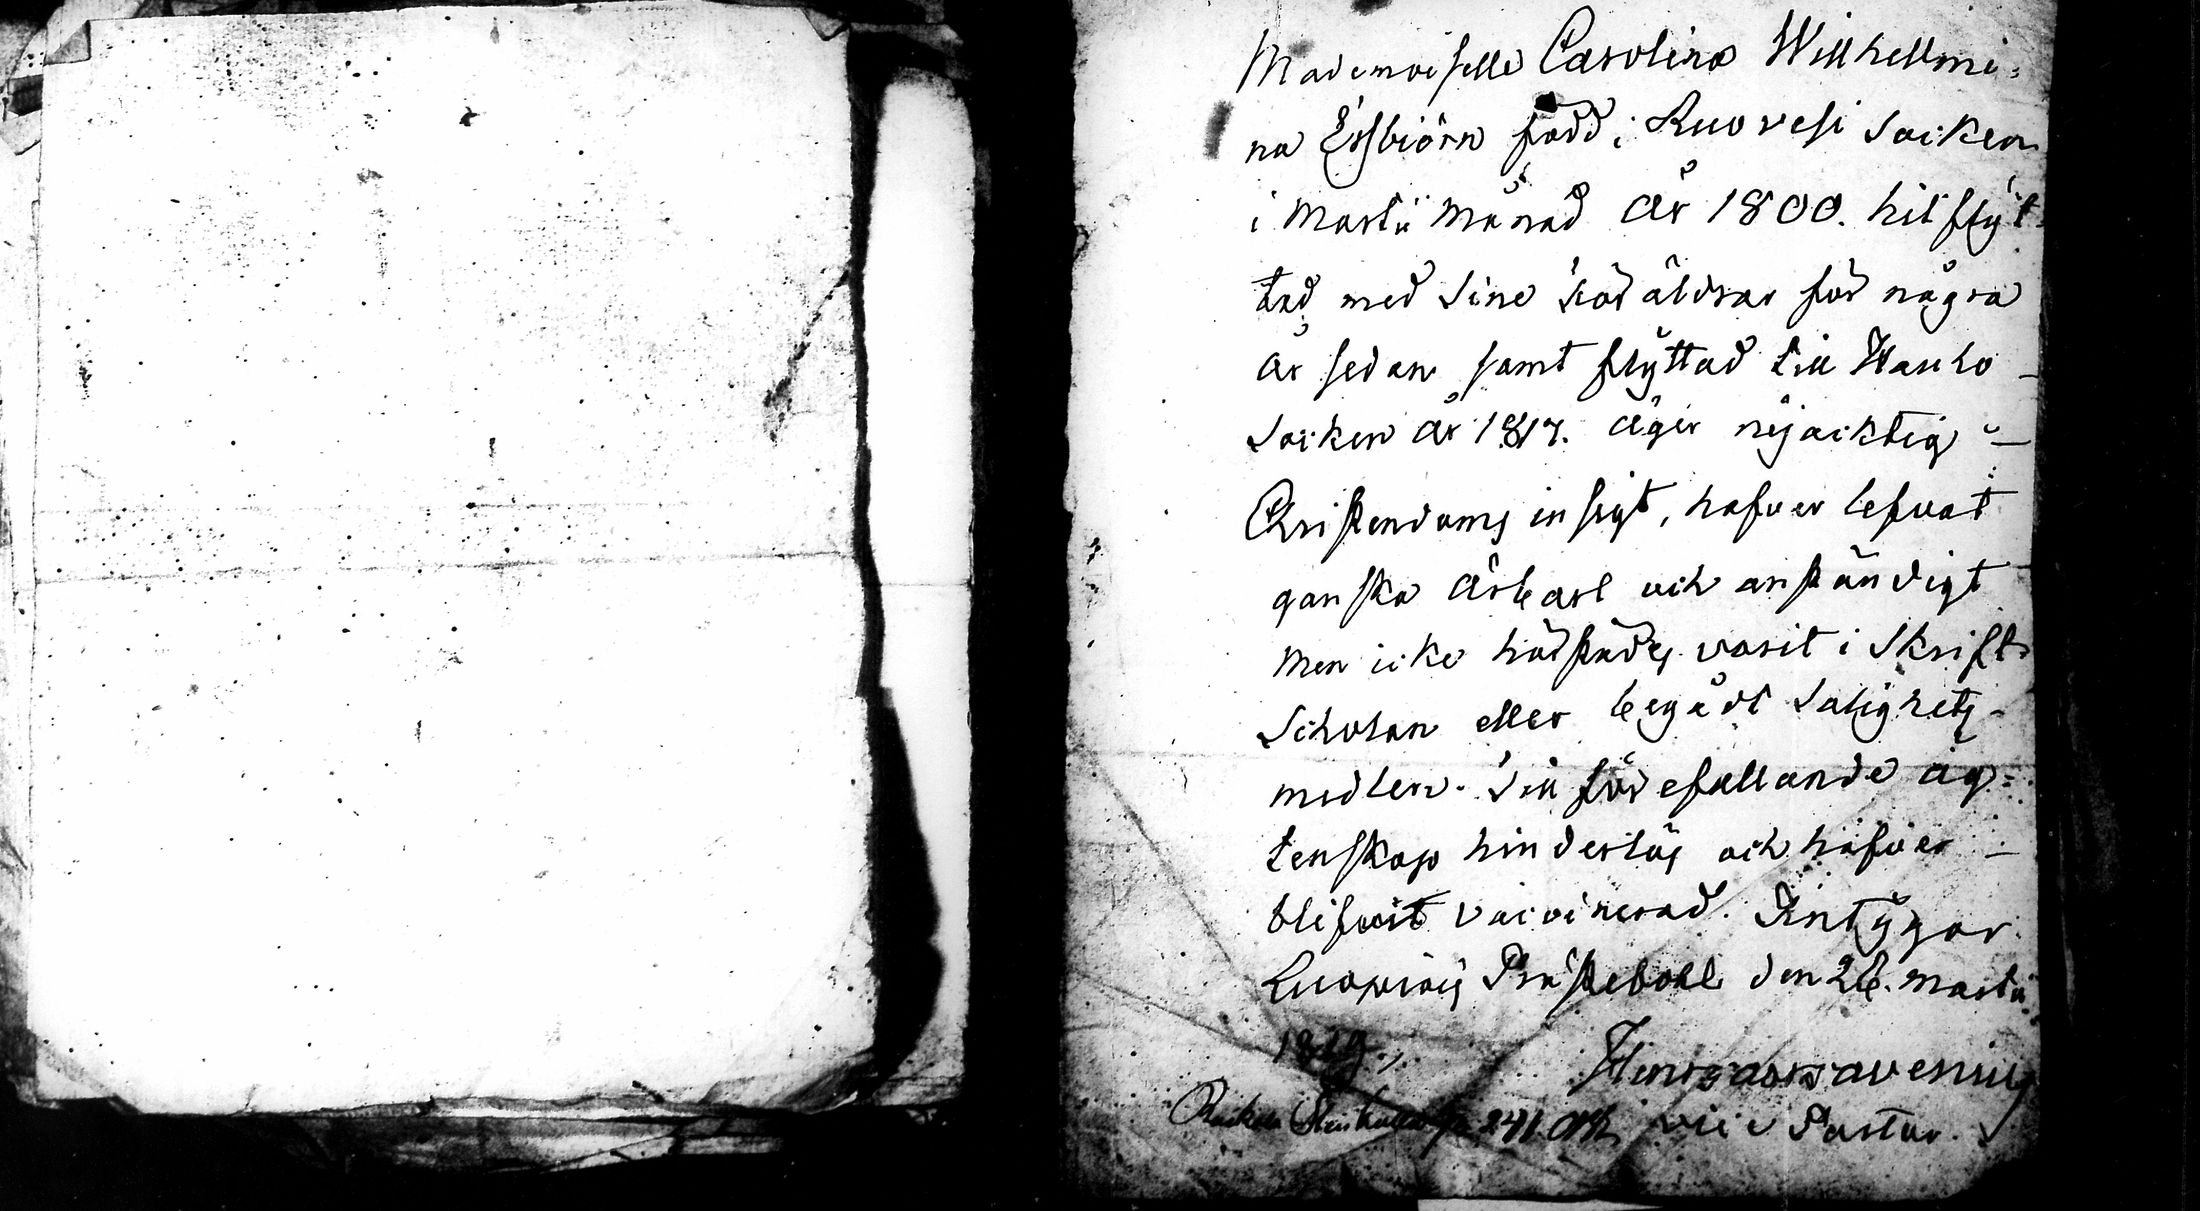 Mademoiselle Carolina Willhellmi-
na Esbiörn född i Ruovesi Socken
i Martii Månad År 1800. hitflyt-
tad med sine Föräldrar för några
år sedan samt flyttad till Wauho
Socken år 1817. äger nöjacktig
Christendoms insigt, hafver lefvat
ganska ärbart och anständigt
men icke härstädes varit i Skrift-
Scholan eller begådt Salighets-
medlen. Till förefallande äg-
tenskap hinderlös och hafver
blifwit vaccinerad. Intygar
Kuopiois Prästeboll den 26. Martii
1819.
vice Pastor.